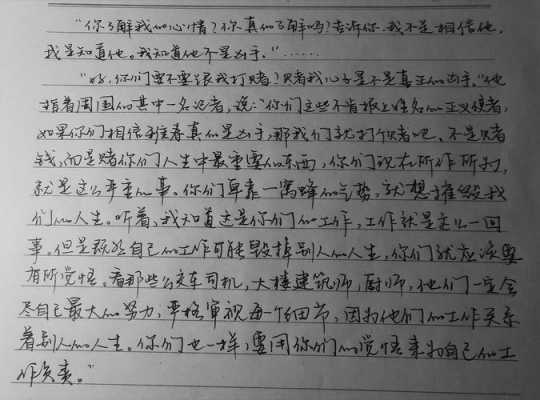 “你了解我的心情？你真的了解吗？告诉你，我不是相信他，
我是知道他。我知道他不是凶手。”……
“好，你们要不要跟我打赌？赌我儿子是不是真正的凶手。”他
指着周围的其中一名记者，说：“你们这些不肯报上姓名的正义使者，
如果你们相信 真的是凶手，那我们就打个赌吧。不是赌
钱，而是赌你们人生中最重要的东西，你们现在所作所为，
就是这么严重的事。你们单靠一窝蜂的气势，就想摧毁我
们的人生。听着，我知道这是你们的工作，工作就是这么一回
事。但是既然自己的工作可能毁掉别人的人生，你们就应该要
有所觉悟。看那些公交车司机，大楼建筑师，厨师，他们一定会
尽自己最大的努力，严格审视每一个细节，因为他们的工作关系
着别人的人生。你们也一样，要用你们的觉悟来为自己的工
作负责。”